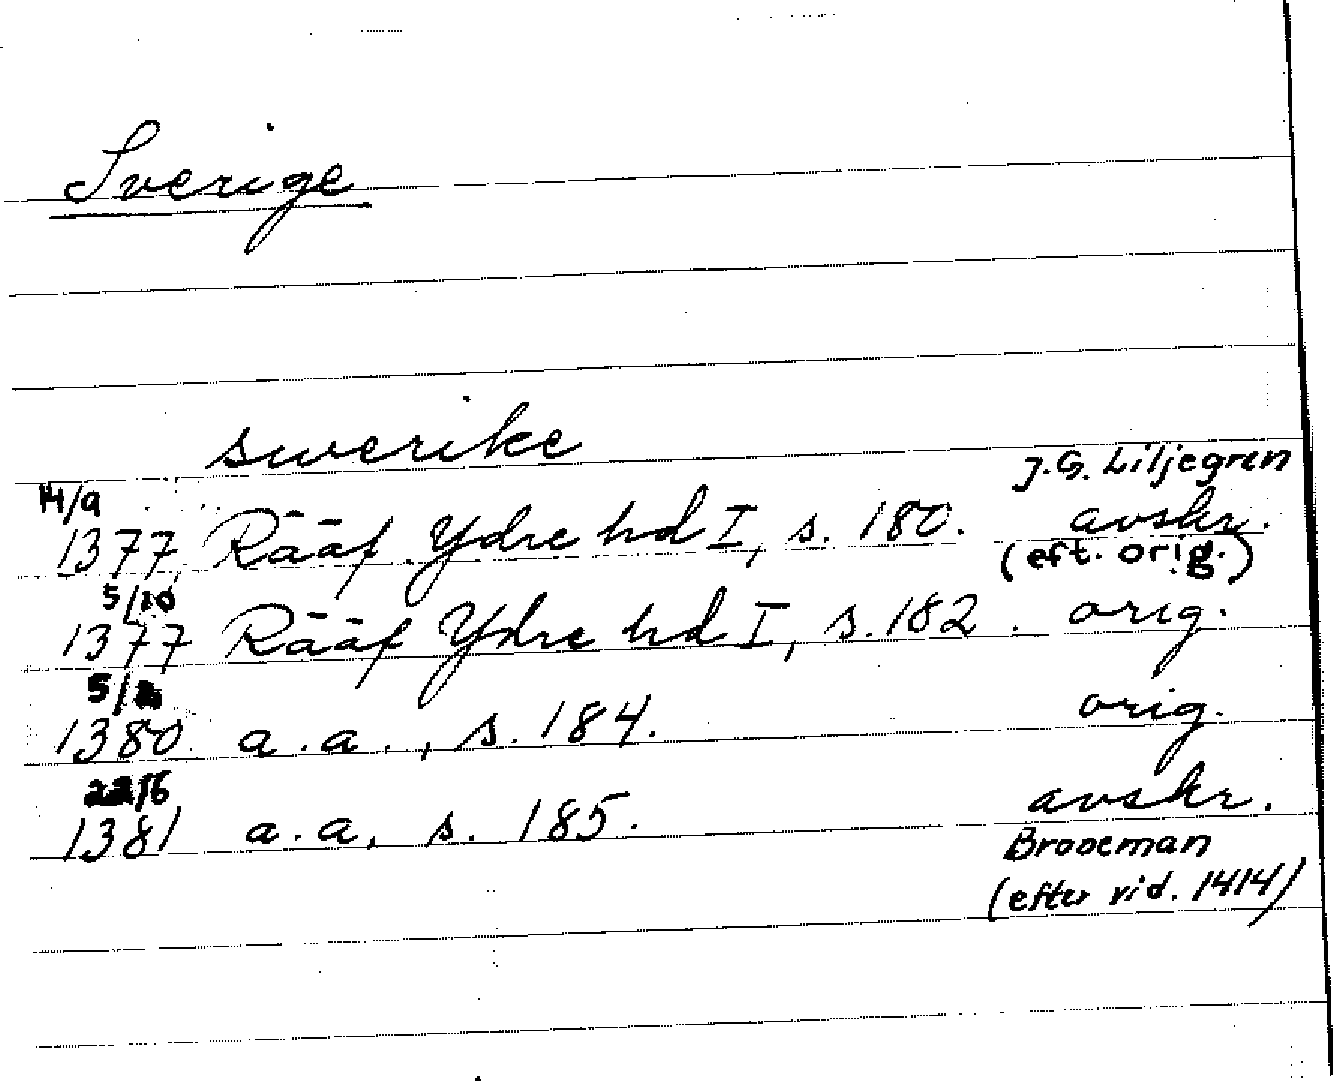 Sverige
swerike
J.G. Liljegren
14/9
1377 Rääf Ydre hd I, s. 180. avskr.
(eft. orig.)
5/10
1377 Rääf Ydre hd I, s. 182. orig.
5/2
1380. a.a., s. 184. orig.
22/6
1381 a.a, s. 185. avskr.
Brooeman
(efter vid. 1414)